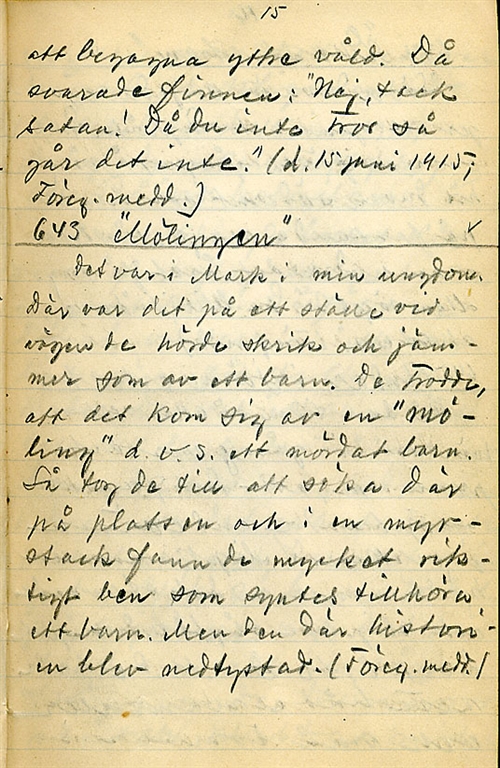 15
att begagna yttre våld. Då
svarade finnen: "Nej, tack
satan! Då du inte tror så
går det inte." (d. 15 juni 1915;
Föreg. medd.)
643 "Mölingen"
Det var i Mark i min ungdom.
Där var det på ett ställe vid
vägen de hörde skrik och jäm-
mer som av ett barn. De trodde,
att det kom sig av en "mö-
ling" d. v. s. ett mördat barn.
Så tog de till att söka där
på platsen och i en myr-
stack fann de mycket rik-
tigt ben som syntes tillhöra
ett barn. Men den där histori-
en blev nedtystad. (Föreg. medd.)